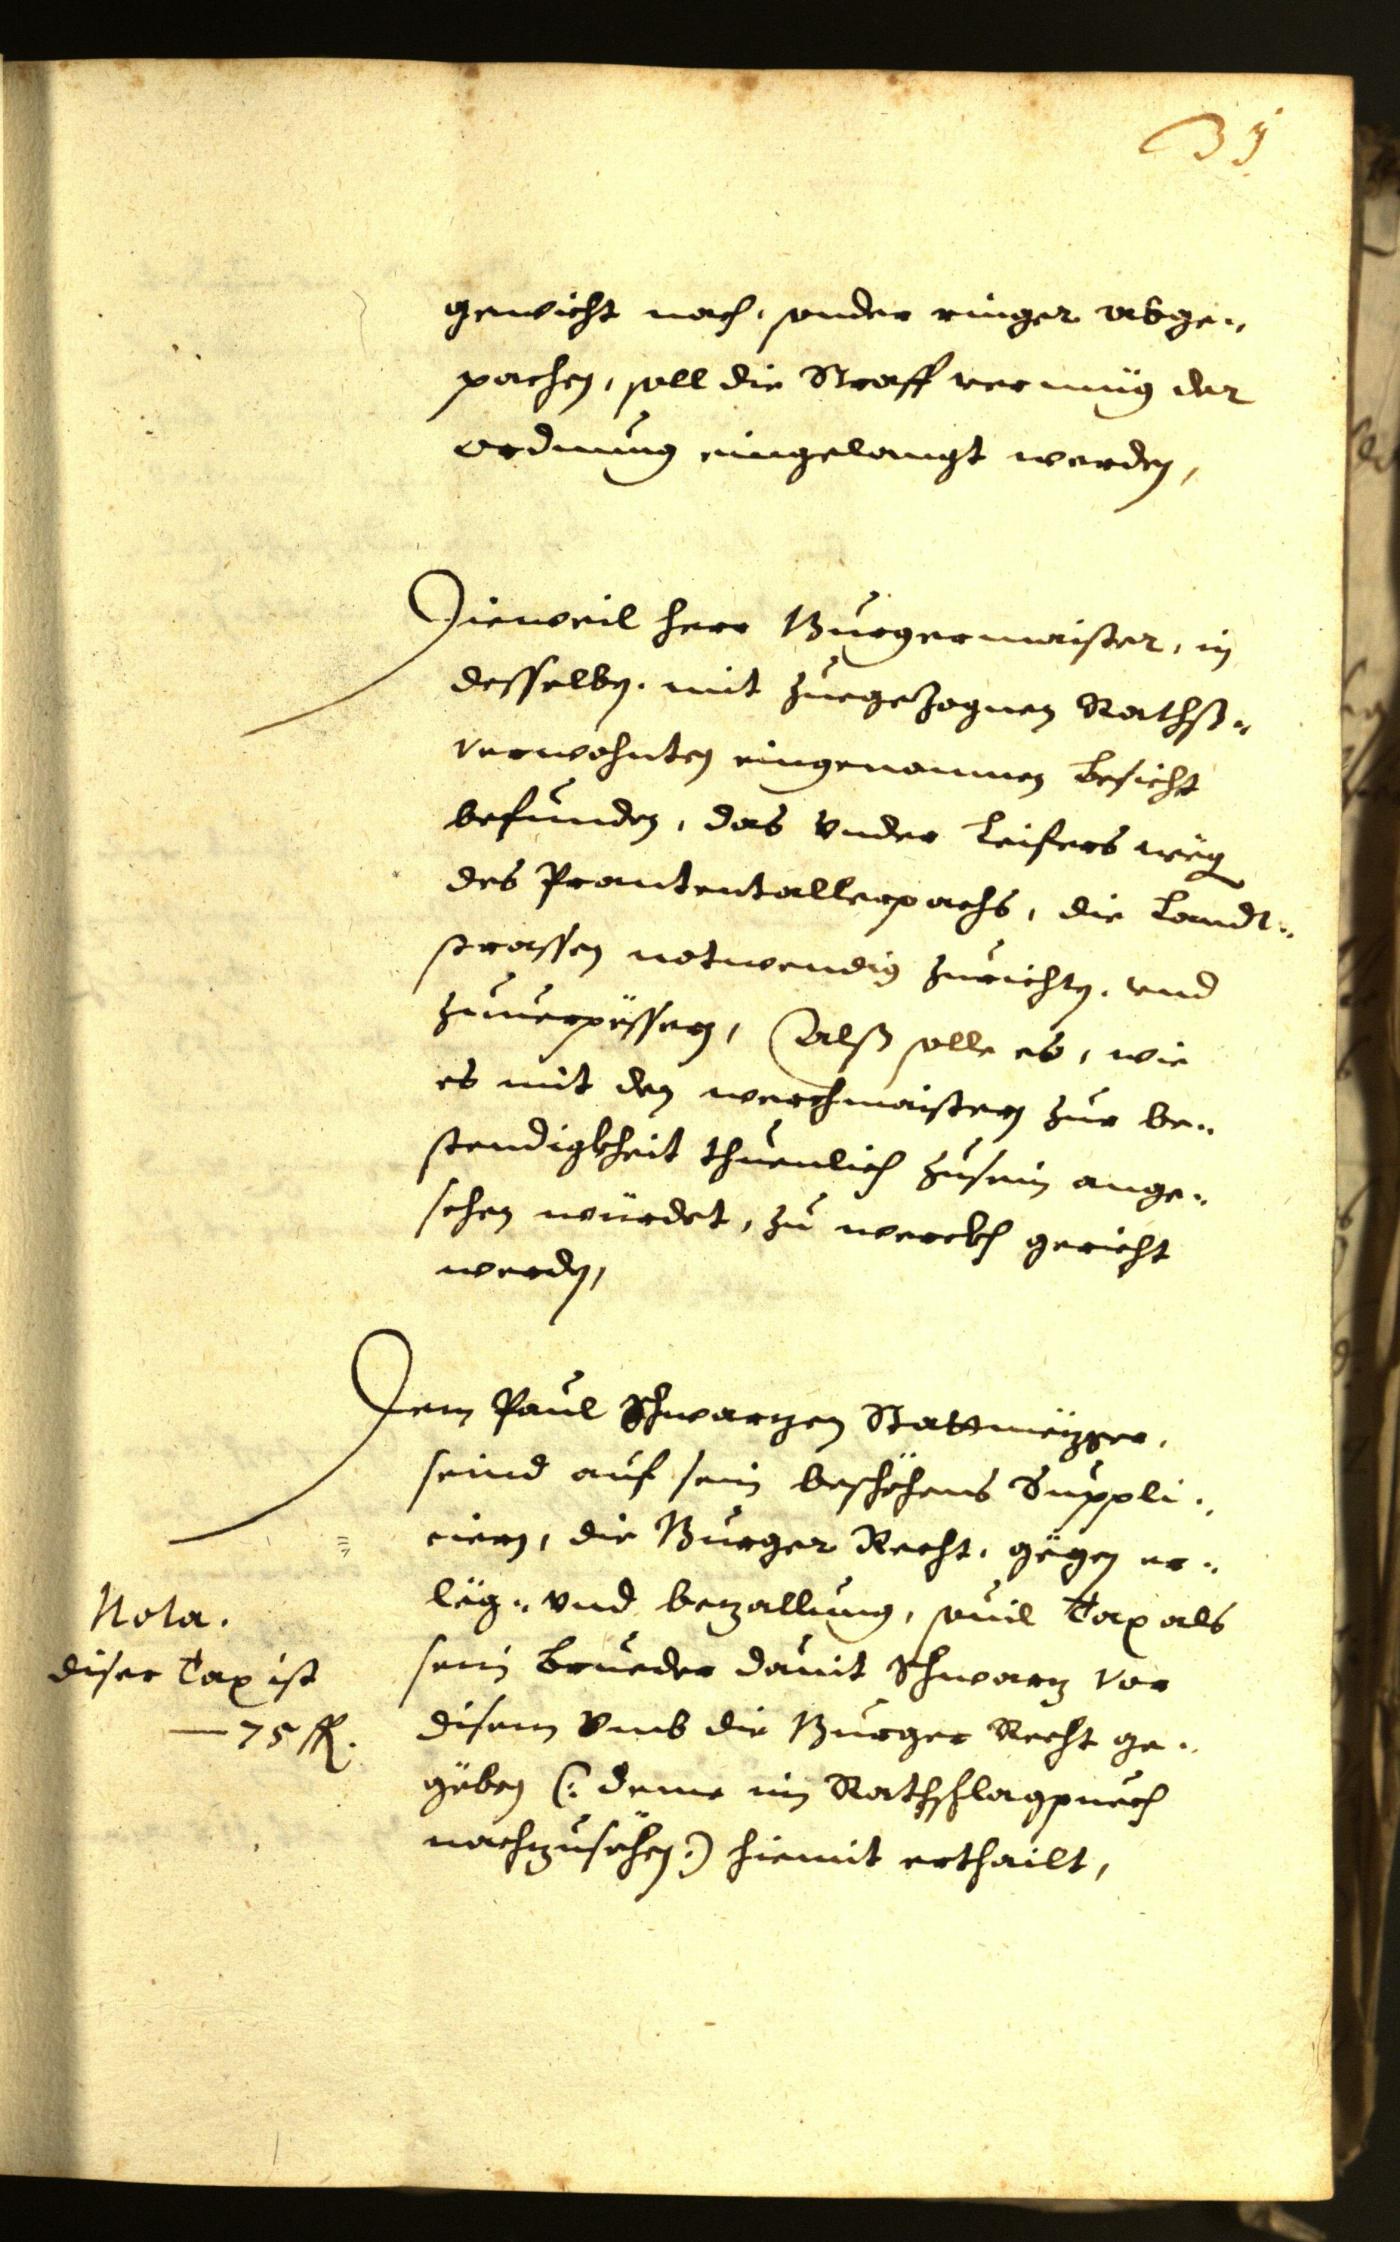 gewicht nach, sonder ringer abge-
pachen, soll die Straff vermüg der
ordnung eingelangt werden,
Dieweil herr Burgermaister, in
desselben mit zuegezognen Raths-
verwohnten eingenommen besicht
befunden, das vnder Leifers wëg
des Prantentallerpachs, die Landt-
strassen notwendig zurichten, vnd
zuuerpëssern, Alß solle es, wie
es mit den werchmaistern zur be-
stendigkheit thuenlich zusein ange-
sehen würdet, zu werckh gericht
werden,
Dem Paul Schwarzen Stattmëzger,
seind auf sein beschëhens Suppli-
ciern, die Burger Recht, gëgen er-
lëg- vnd bezallung, souil Tax als
sein brueder Dauit Schwarz vor
disem vmb die Burger Recht ge-
gëben (: deme im Rathschlagpuech
nachzusëhen:) hiemit erthailt,
Nota.
diser Tax ist
— 75 fl.